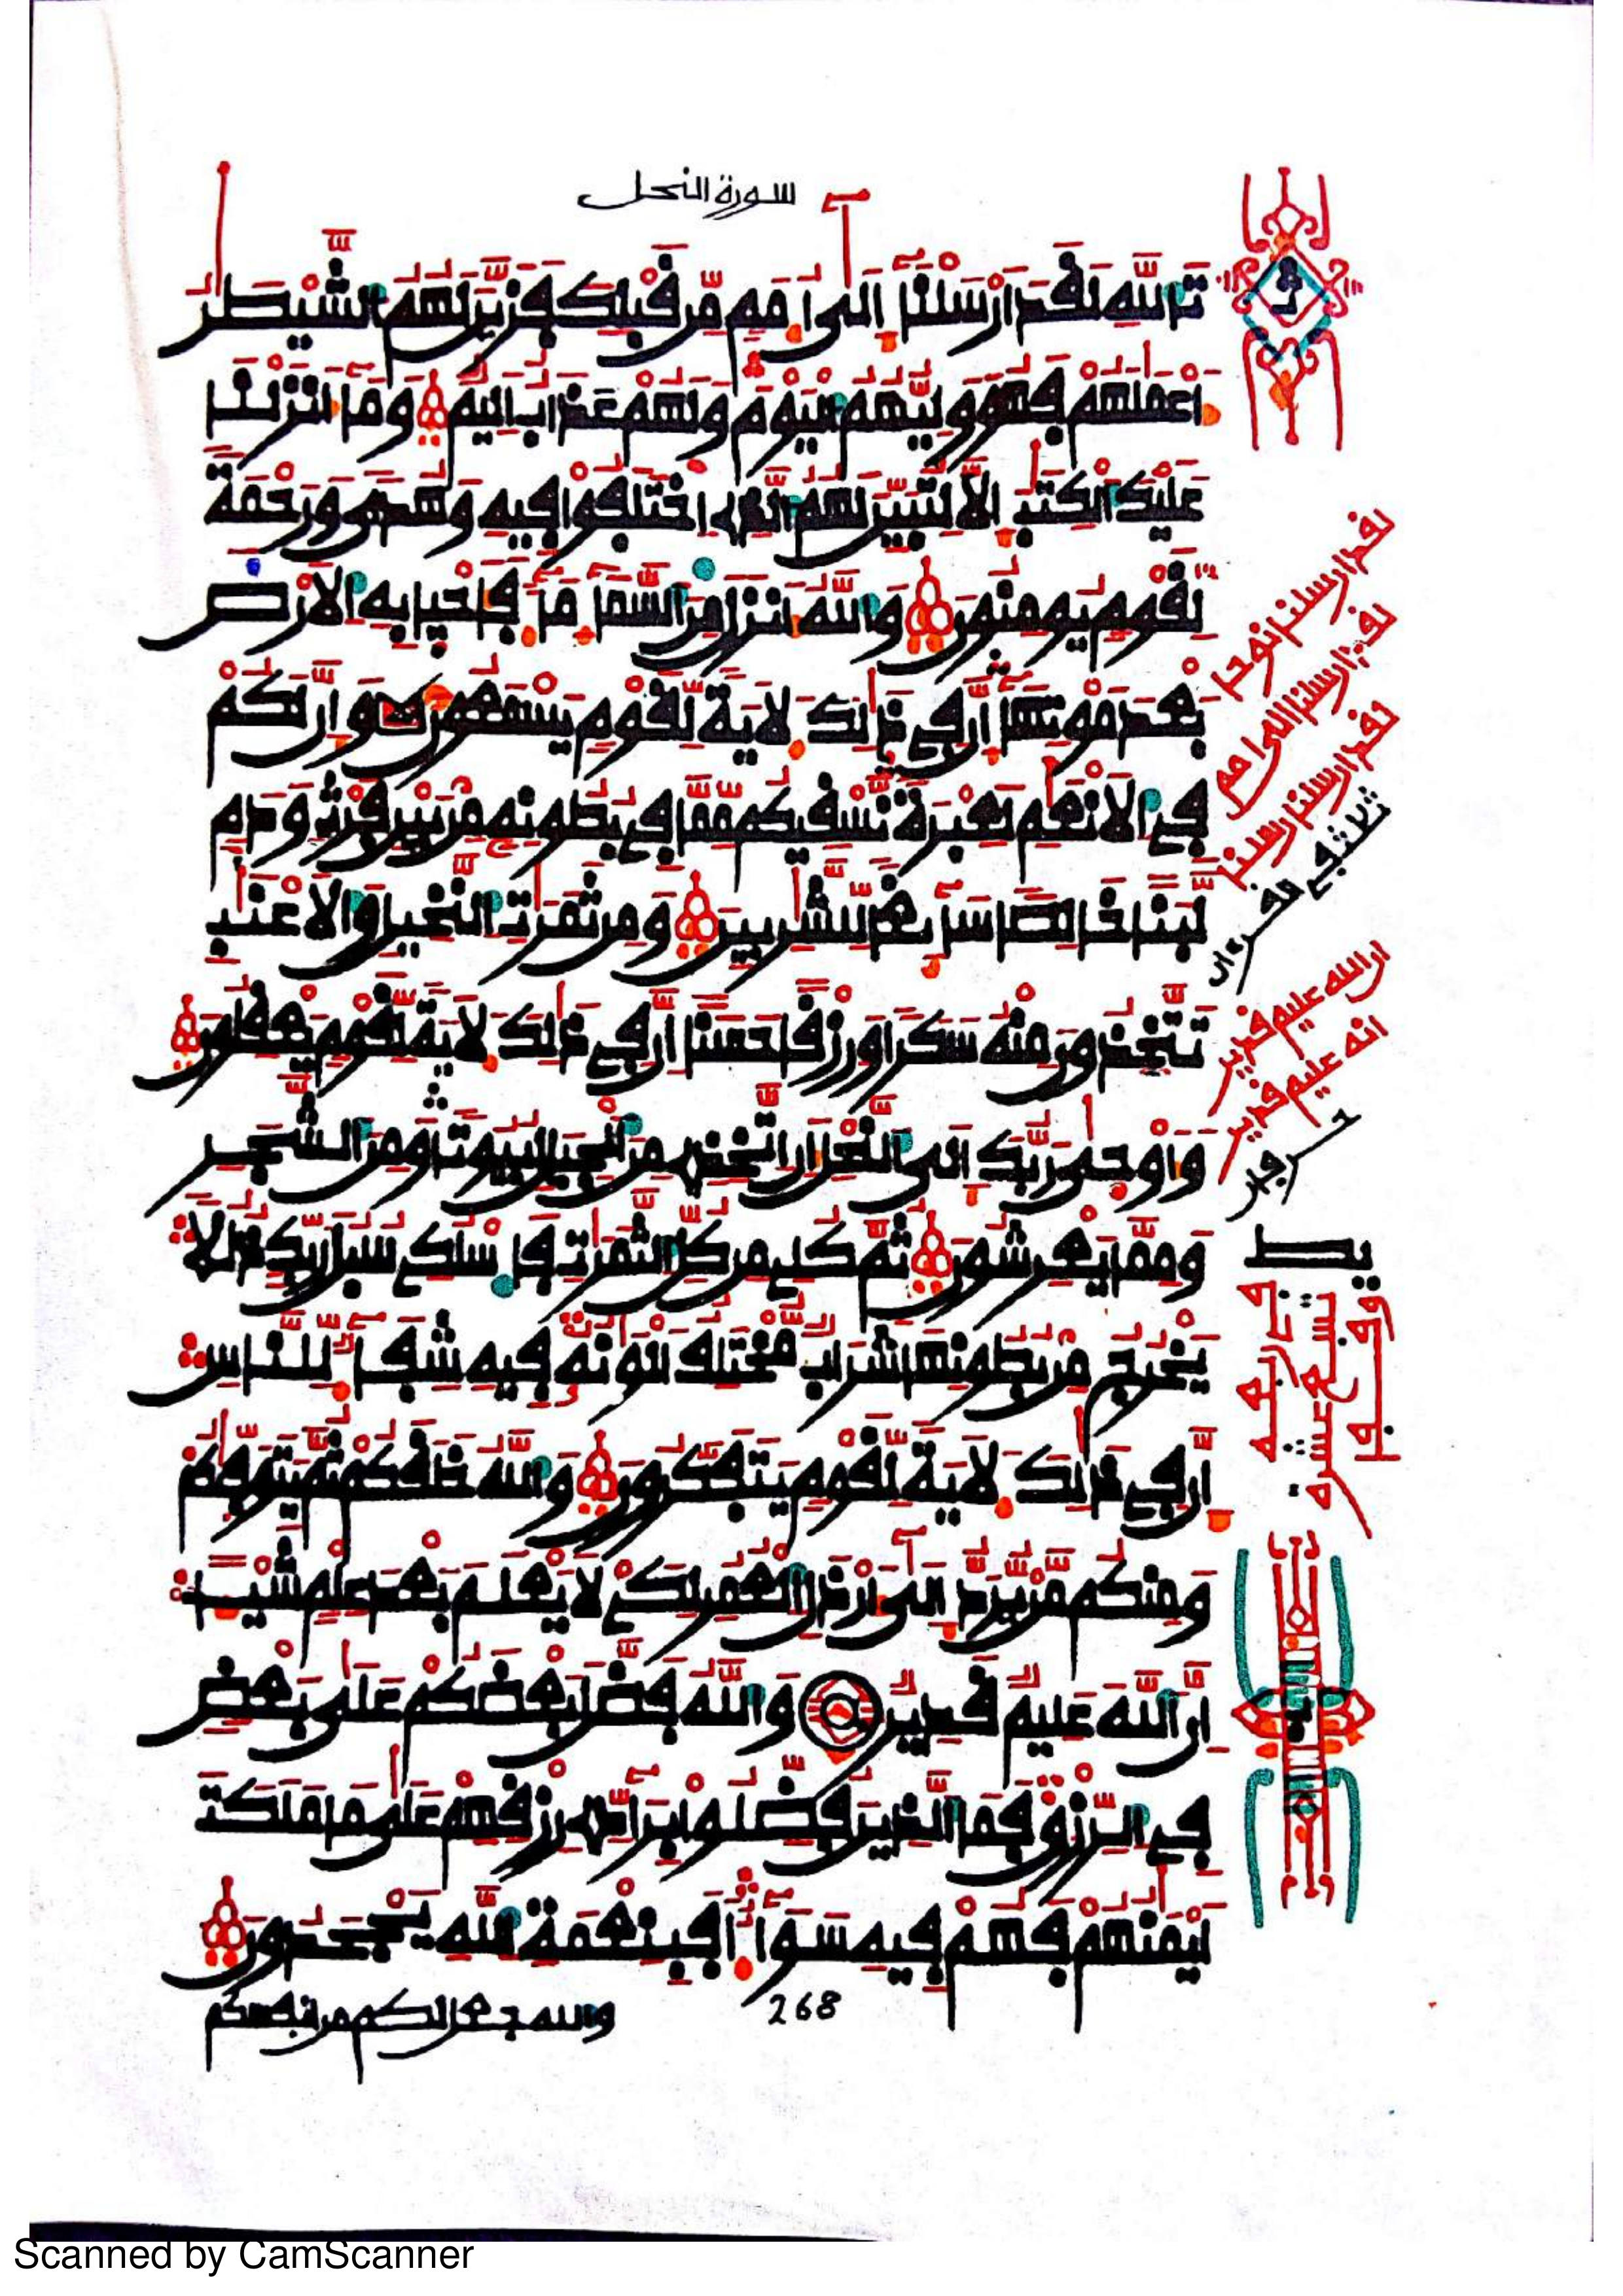 سورة النحل
تَاللَّهِ لَقَدَ ارْسَلْنَا إِلَى أُمَمٍ مِّن قَبْلِكَ فَزَيَّنَ لَهُمُ الشَّيْطَنُ
أَعْمَلَهُمْ فَهُوَ وَلِيُّهُمُ الْيَوْمَ وَلَهُمْ عَذَابٌ اَلِيمٌ وَمَا أَنزَلْنَا
عَلَيْكَ الْكِتَبَ إِلَّا لِتُبَيِّنَ لَهُمُ الَّذِى اِخْتَلَفُوا فِيهِ وَهُدًى وَرَحْمَةً
لِّقَوْمٍ يُومِنُونَ وَاللَّهُ أَنزَلَ مِنَ السَّمَاءِ مَاءً فَأَحْيَا بِهِ الْأَرْضَ
بَعْدَ مَوْتِهَا إِنَّ فِي ذَلِكَ لَأَيَةً لِّقَوْمٍ يَسْمَعُونَ وَإِنَّ لَكُمْ
فِي الْأَنْعَمِ لَعِبْرَةً نَّسْقِيكُم مِّمَّا فِي بُطُونِهِ مِن بَيْنِ فَرْثٍ وَدَمٍ
لَّبَنًا خَالِصًا سَائِغًا لِّلشَّرِبِينَ وَمِن ثَمَرَتِ النَّخِيلِ وَالْأَعْنَبِ
تَتَّخِذُونَ مِنْهُ سَكَرًا وَرِزْقًا حَسَنًا إِنَّ فِي ذَلِكَ لَأَيَةً لِّقَوْمٍ يَعْقِلُونَ
وَأَوْحَى رَبُّكَ إِلَى النَّحْلِ أَنِ اتَّخِذِى مِنَ الْجِبَالِ بُيُوتًا وَمِنَ الشَّجَرِ
وَمِمَّا يَعْرِشُونَ ثُمَّ كُلِى مِن كُلِّ الثَّمَرَتِ فَاسْلُكِى سُبُلَ رَبِّكِ ذُلُلًا
يَخْرُجُ مِن بُطُونِهَا شَرَابٌ مُّخْتَلِفٌ أَلْوَنُهُ فِيهِ شِفَاءٌ لِّلنَّاسِ
إِنَّ فِي ذَلِكَ لَأَيَةً لِّقَوْمٍ يَتَفَكَّرُونَ وَاللَّهُ خَلَقَكُمْ ثُمَّ يَتَوَفَّىكُمْ
وَمِنكُم مَّن يُرَدُّ إِلَى أَرْذَلِ الْعُمُرِ لِكَىْ لَا يَعْلَمَ بَعْدَ عِلْمٍ شَيْئًا
إِنَّ اللَّهَ عَلِيمٌ قَدِيرٌ وَاللَّهُ فَضَّلَ بَعْضَكُمْ عَلَى بَعْضٍ
فِي الرِّزْقِ فَمَا الَّذِينَ فُضِّلُوا بِرَادِّى رِزْقِهِمْ عَلَى مَا مَلَكَتَ
اَيْمَنُهُمْ فَهُمْ فِيهِ سَوَاءٌ أَفَبِنِعْمَةِ اللَّهِ يَجْحَدُونَ
والله جعل لكم من انفسكم
268
لقد ارسلنا نوحا
لقد ارسلنا الى امم
لقد ارسلنا رسلنا
ثلاث في القرءان
ان الله عليم قدير
انه عليم قدير
حرفان
Scanned by CamScanner